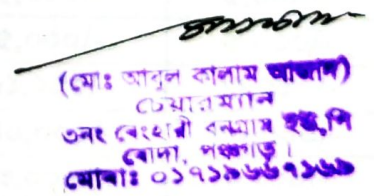 (মোঃ আবুল কালাম আজাদ)
চেয়ারম্যান
৩নং বেংহারী বনগ্রাম ইউ,পি
বোদা, পঞ্চগড়।
মোবাঃ ০১৭১৯৬৬৭১৬৯